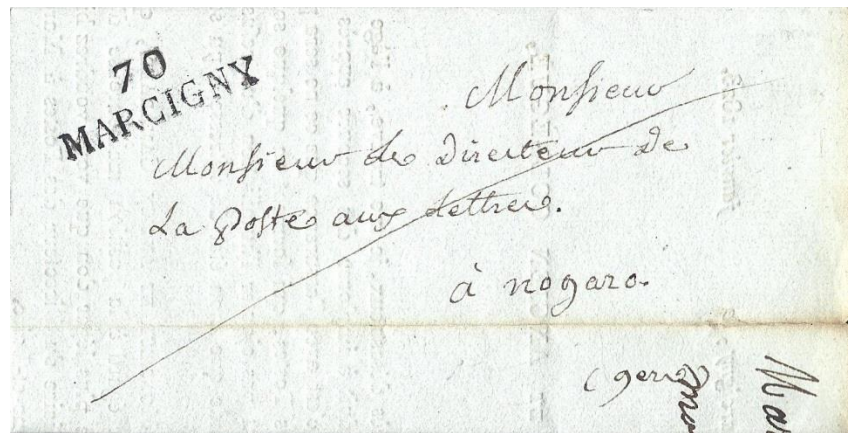 70
MARCIGNY
Monsieur
Monsieur le Directeur De
La Poste aux Lettres.
à nogaro.
(gers
Ma